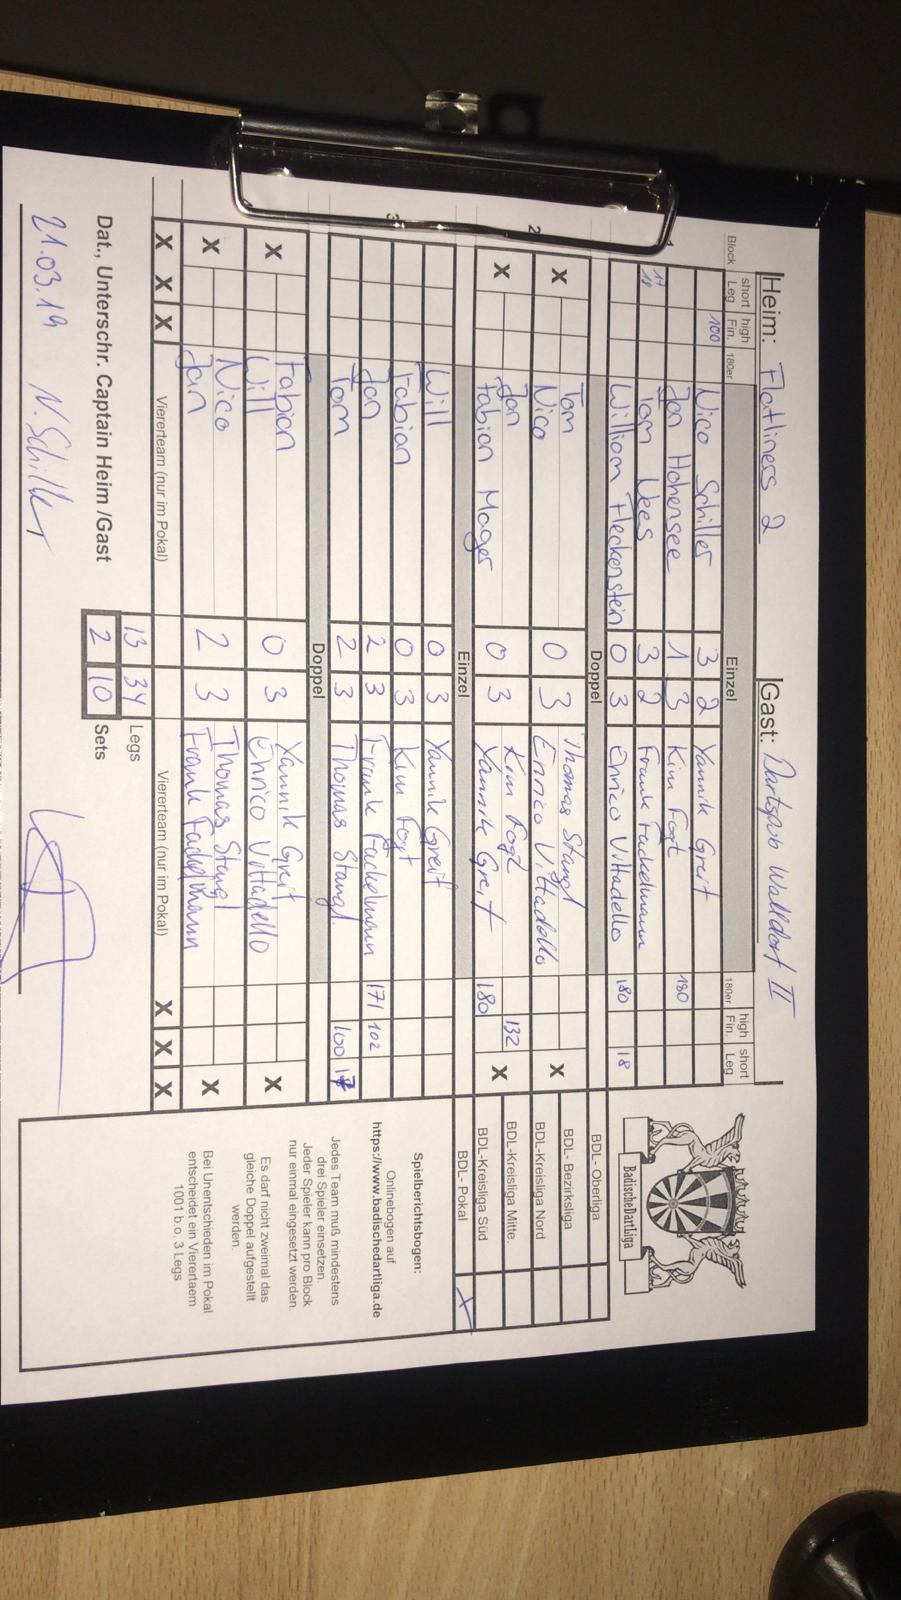 Heim: Flatliners 2 Gast: Dartspub Walldorf II
Block short Leg high Fin. 180er Einzel 180er high Fin. short Leg
100 Nico Schiller 3 2 Yannik Greit
Jan Hohensee 1 3 Kim Fogt 180
17 18 Tom Nees 3 2 Frank Fackelmann
William Fleckenstein 0 3 Enrico Vittadello 180 18
Doppel
2 X Tom Nico 0 3 Thomas Stangl Enrico Vittadello X
X Jan Fabian Mager 0 3 Kim Fogt Yannik Greit 180 132 X
Einzel
3 Will 0 3 Yannik Greit
Fabian 0 3 Kim Fogt
Jan 2 3 Frank Fackelmann 171 102
Tom 2 3 Thomas Stangl 100 17
Doppel
X Fabian Will 0 3 Yannik Greit Enrico Vittadello X
X Nico Jan 2 3 Thomas Stangl Frank Fackelmann X
X X X Viererteam (nur im Pokal) Viererteam (nur im Pokal) X X X
13 34 Legs
Dat., Unterschr. Captain Heim /Gast 2 10 Sets
21.03.19 N. Schiller
BadischeDartLiga
BDL- Oberliga
BDL- Bezirksliga
BDL-Kreisliga Nord
BDL-Kreisliga Mitte.
BDL-Kreisliga Süd
BDL- Pokal X
Spielberichtsbogen:
Onlinebogen auf
https://www.badischedartliga.de
Jedes Team muß mindestens
drei Spieler einsetzen.
Jeder Spieler kann pro Block
nur einmal eingesetzt werden.
Es darf nicht zweimal das
gleiche Doppel aufgestellt
werden.
Bei Unentschieden im Pokal
entscheidet ein Vierertaem
1001 b.o. 3 Legs